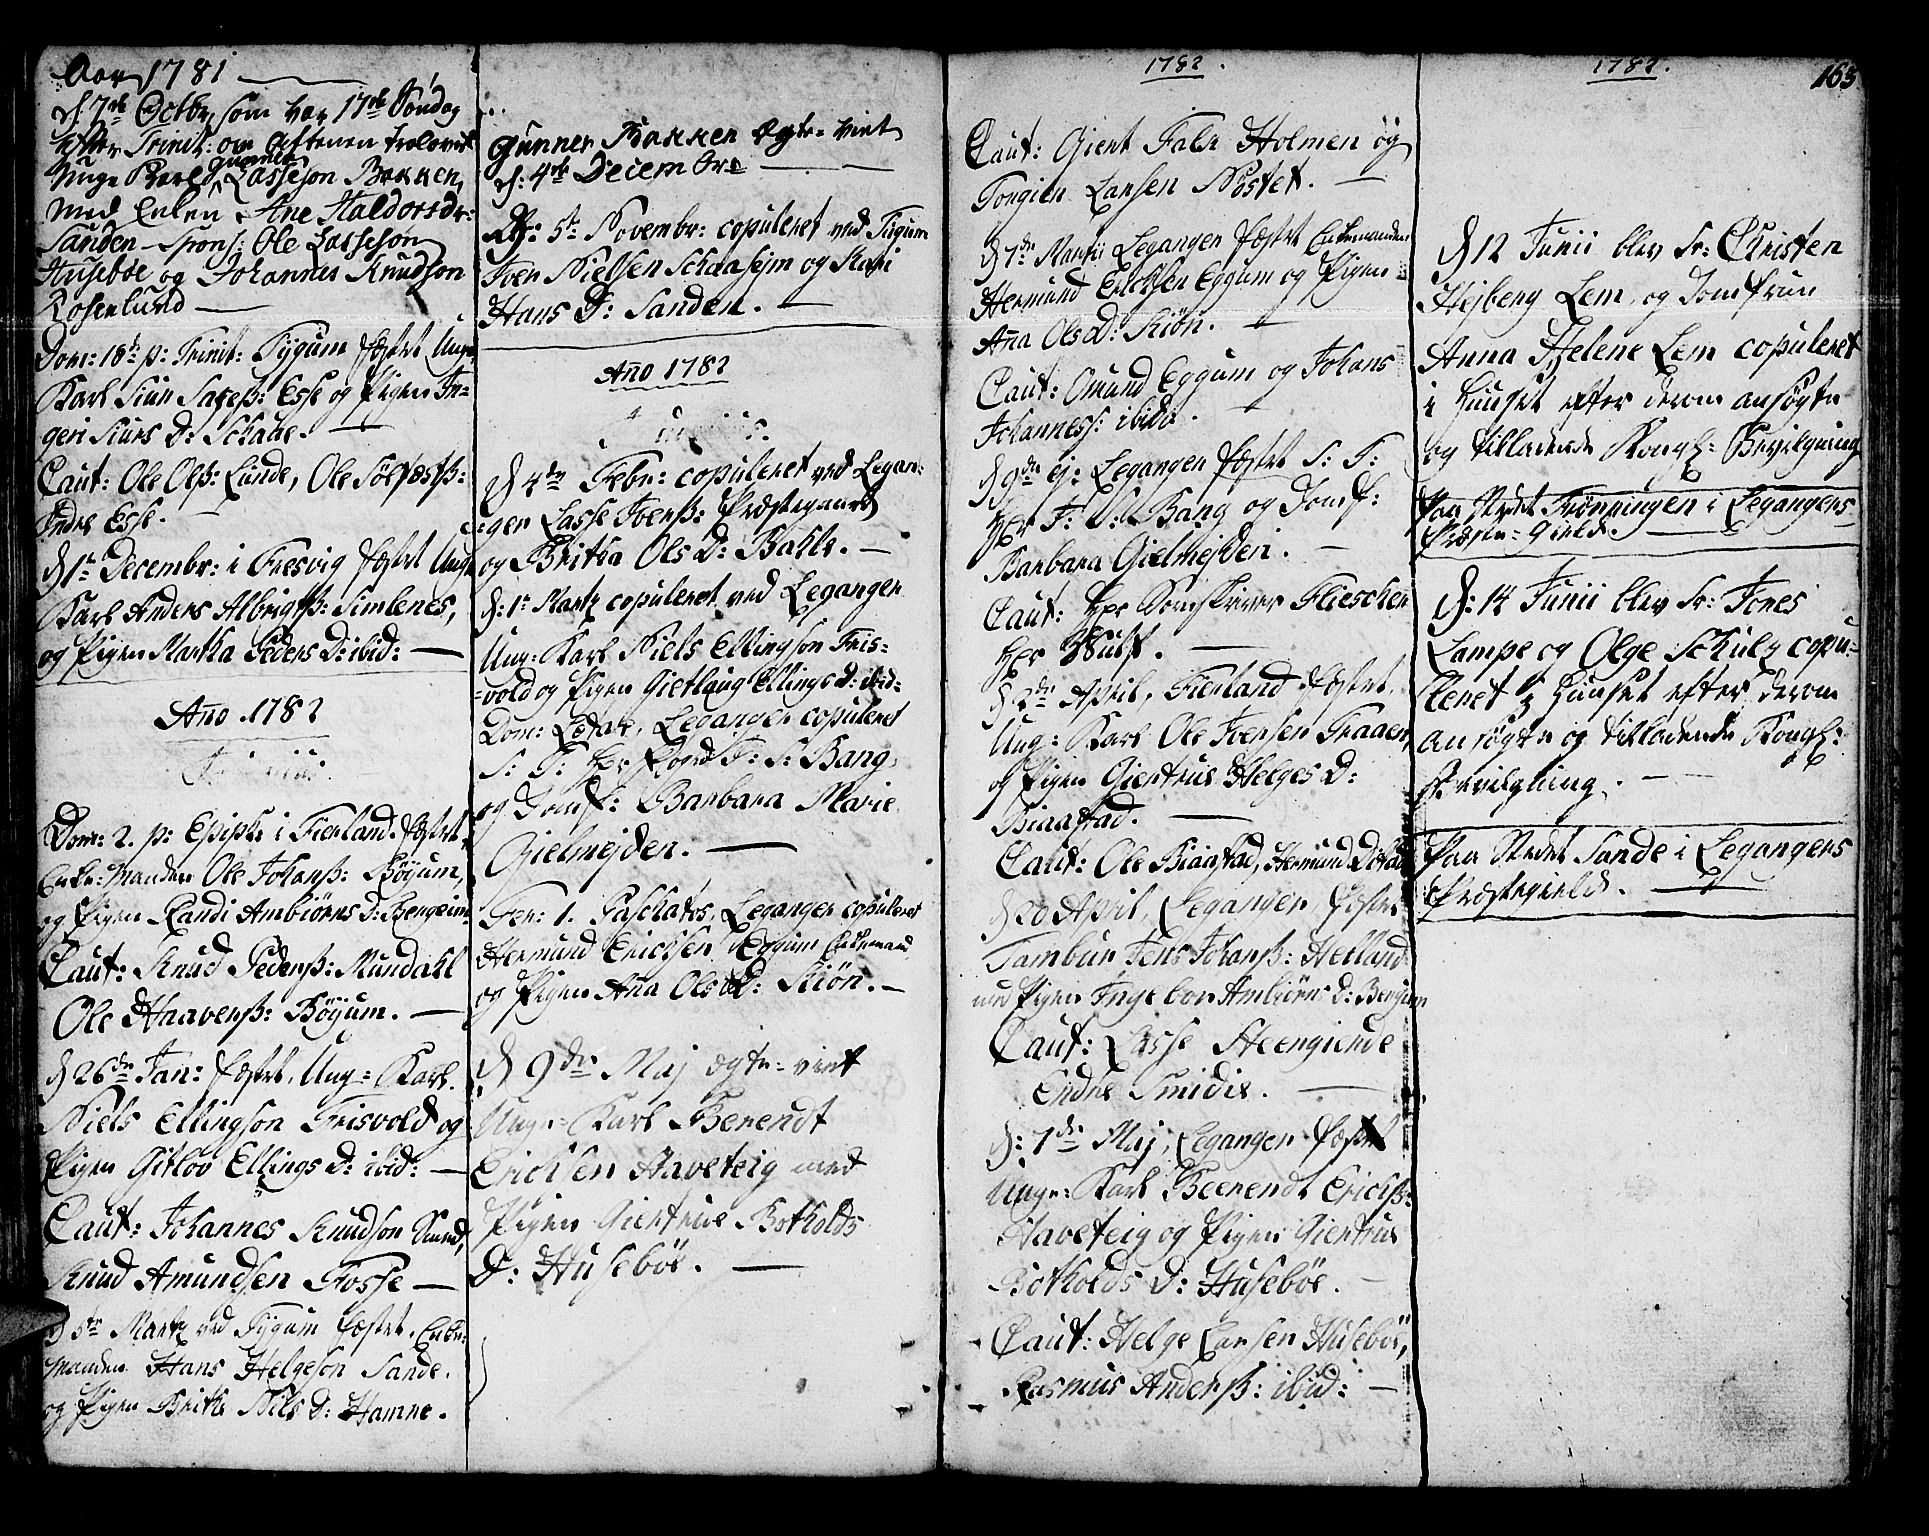 Aar 1781
d. 7de Octbr som var 17de Søndag
efter Trinit: om Aftenen trolovet
gunner
Unge Karl Lasseson Bakken,
med Enken Ane Haldorsdr:
Sanden - Spons: Ole Lasseson
Husebøe og Johannes Knudson
Rosenlund —
Dom: 18de p: Trinit: Tygum fæstet Unge
Karl Siur ß: Esse og Pigen In-
geri Siurs D: Schaae. —
Caut: Ole Olß: Lunde, Ole Sølfæstß:
Indre Esse. —
d 1te Decembr: i Fresvig fæstet Unge
Karl Anders Albrigtß: Simlenes,
og Pigen Martha Peders D: ibid: —
Ano 1782
Dom: 2. p: Epiph: i Fierland fæstet
Enke-Manden Ole Johanß: Bøyum,
og Pigen Randi Ambiørns D: Bergeim
Caut: Knud Pedersß: Mundahl
Ole Haaversß: Bøyum. —
d 26de Jan: fæstet Ung- Karl
Niels Ellingson Frisvold og
Pigen Gitlov Ellings D: ibid: —
Caut: Johannes Knudson
Knud Amundsen Fosse —
d 5te Martz ved Tygum fæstet Enke-
manden Hans Helgeson Sande.
og Pigen Brithe Nils D: Hamre.
Gunner Bakken Egte-viet
d: 4de Decembre —
D: 5te Novembr: copuleret ved Tygum
Iver Nielsen Schaasejm og Kari
Hans D: Sanden. —
Ano 1782
d 4de Febr: copuleret ved Legan-
ger Lasse Iversß: Præstegaard
og Britha Ols D: Bahle. —
d: 1te Martz copuleret ved Leganger
Ung: Karl Niels Ellingson Fris-
vold og Pigen Gietlaug Ellings D: ibid:
Dom: Lætare, Leganger copuleret
S: T: Hr F: S: Bang,
og Jomf: Barbara Marie
Gielmejden. —
Fer: 1. Paschatos, Leganger copuleret
Hermund Ericksen Eggum Enkemand
og Pigen Ana Ols D: Skiön. —
d 9de Maj ægte-viet
Unge- Karl Berendt
Ericksen Aaveteig med
Pigen Giertrue Botholds
D: Husebøe. —
1782.
Caut: Giert Falk Holmen og
Torgier Larsen Nøstet. —
d 7de Martii Leganger fæstet Enkemanden
Hermund Ericksen Eggum og Pigen
Ana Ols D: Skiön. —
Caut: Omund Eggum og Johans
Johanness: ibid.
d 9de ej: Leganger fæstet S: T:
Hr F: S: Bang og Jomf:
Barbara Gielmejden. —
Caut: Hr Sorenskriver Fleischer
Hr Wulf. —
d 2de April, Fierland fæstet
Ung: Karl Ole Iversen Traaen,
og Pigen Giertrue Helges D:
Biaastad. —
Caut: Ole Biaastad, Hermund
d 20 April, Leganger, fæstet
Tambur Jens Johanß: Helland
med Pigen Ingebor Ambiörns D: Bergeim
Caut: Lasse Steengierde
Endre Smidie. —
d: 7de Maj, Leganger fæstet
Unge- Karl Beerendt Ericksß:
Aaveteig og Pigen Giertrue
Botholds D: Husebøe. —
Caut: Helge Larsen Husebøe,
Rasmus Andersß: ibid: —
1782.
163
d 12 Junii blev Sr: Christen
Hejberg Lem, og Jomfrue
Anna Helene Lem copuleret
i Huuset efter derom ansøgte
og tilladende Kongl: Bevilgning
Paa Stedet Frønningen i Legangers
Præste-Gield. —
d: 14 Junii blev Sr: Jones
Lampe og Olge Schulz copu-
leret i Huuset efter derom
ansøgte og tilladende Kongl:
Bevilgning. —
Paa Stedet Sande i Legangers
Præstegield. —